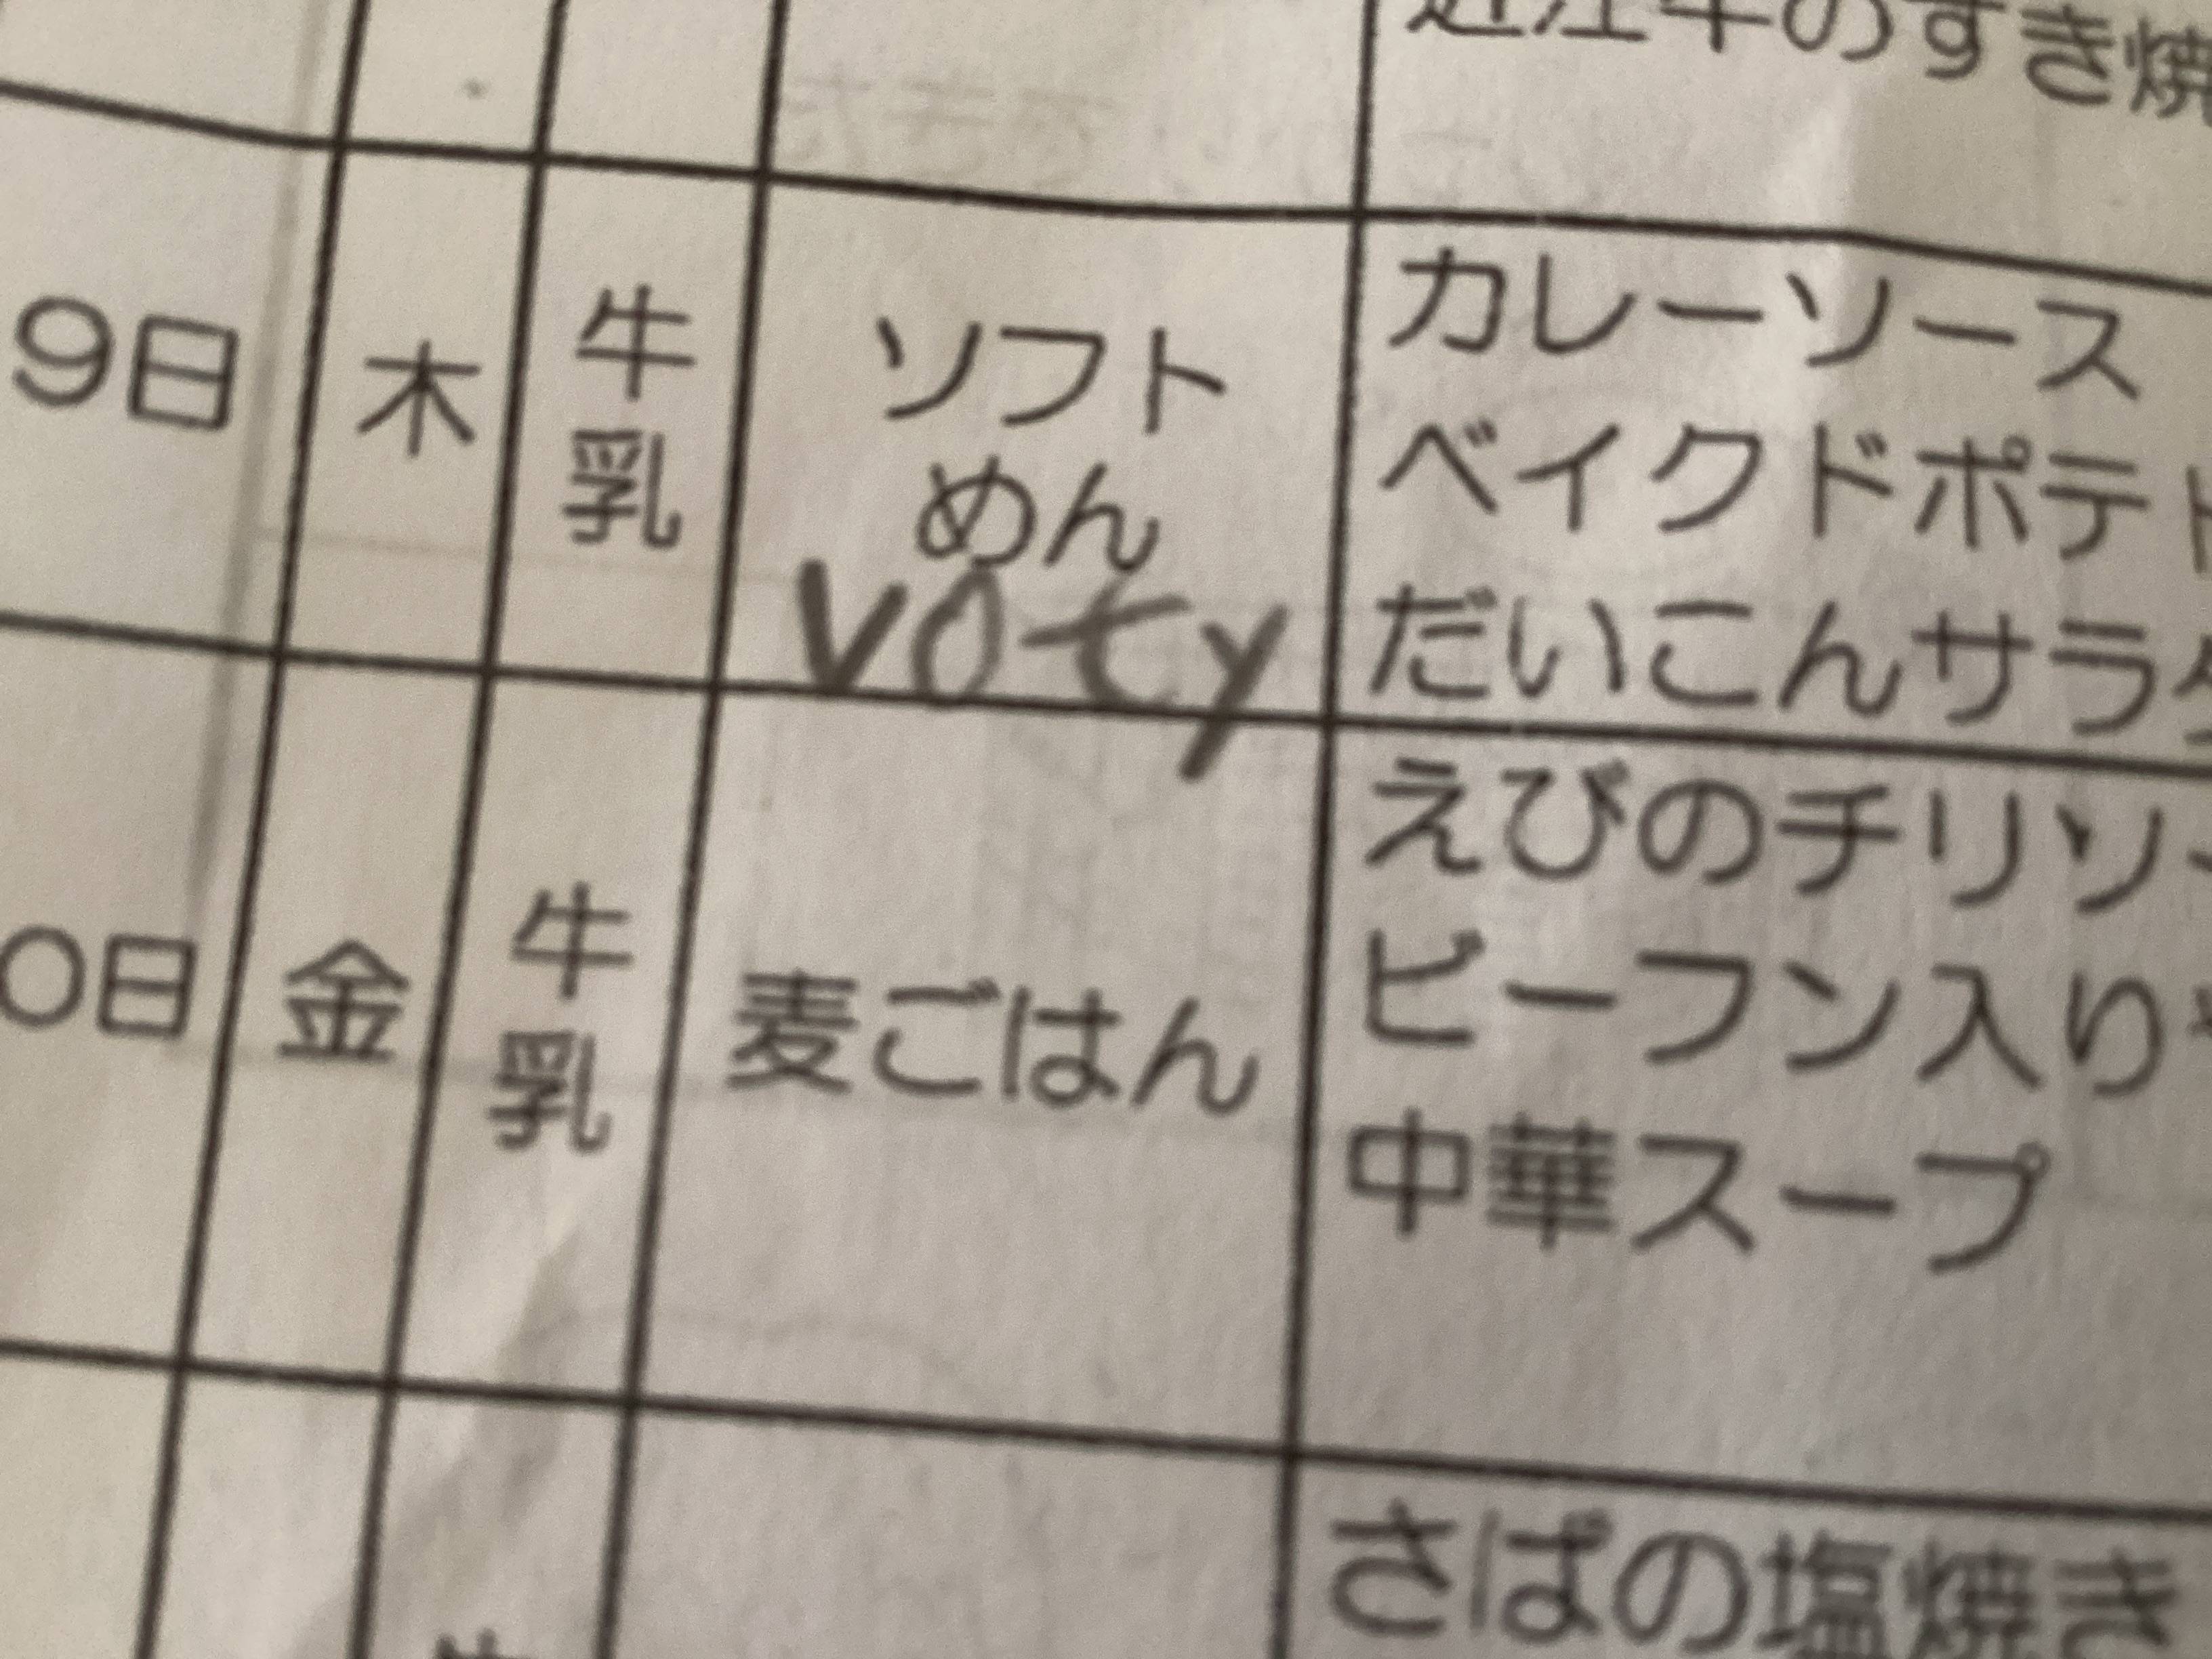 近江牛のすき焼
9日 木 牛乳 ソフトめん カレーソース
ベイクドポテト
だいこんサラダ
voty
0日 金 牛乳 麦ごはん えびのチリソー
ビーフン入り
中華スープ
さばの塩焼き